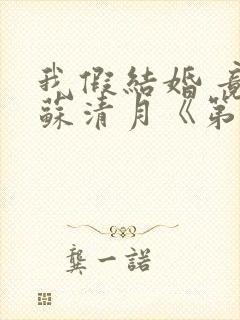 我假結婚竟
蘇清月《第
龔一諾